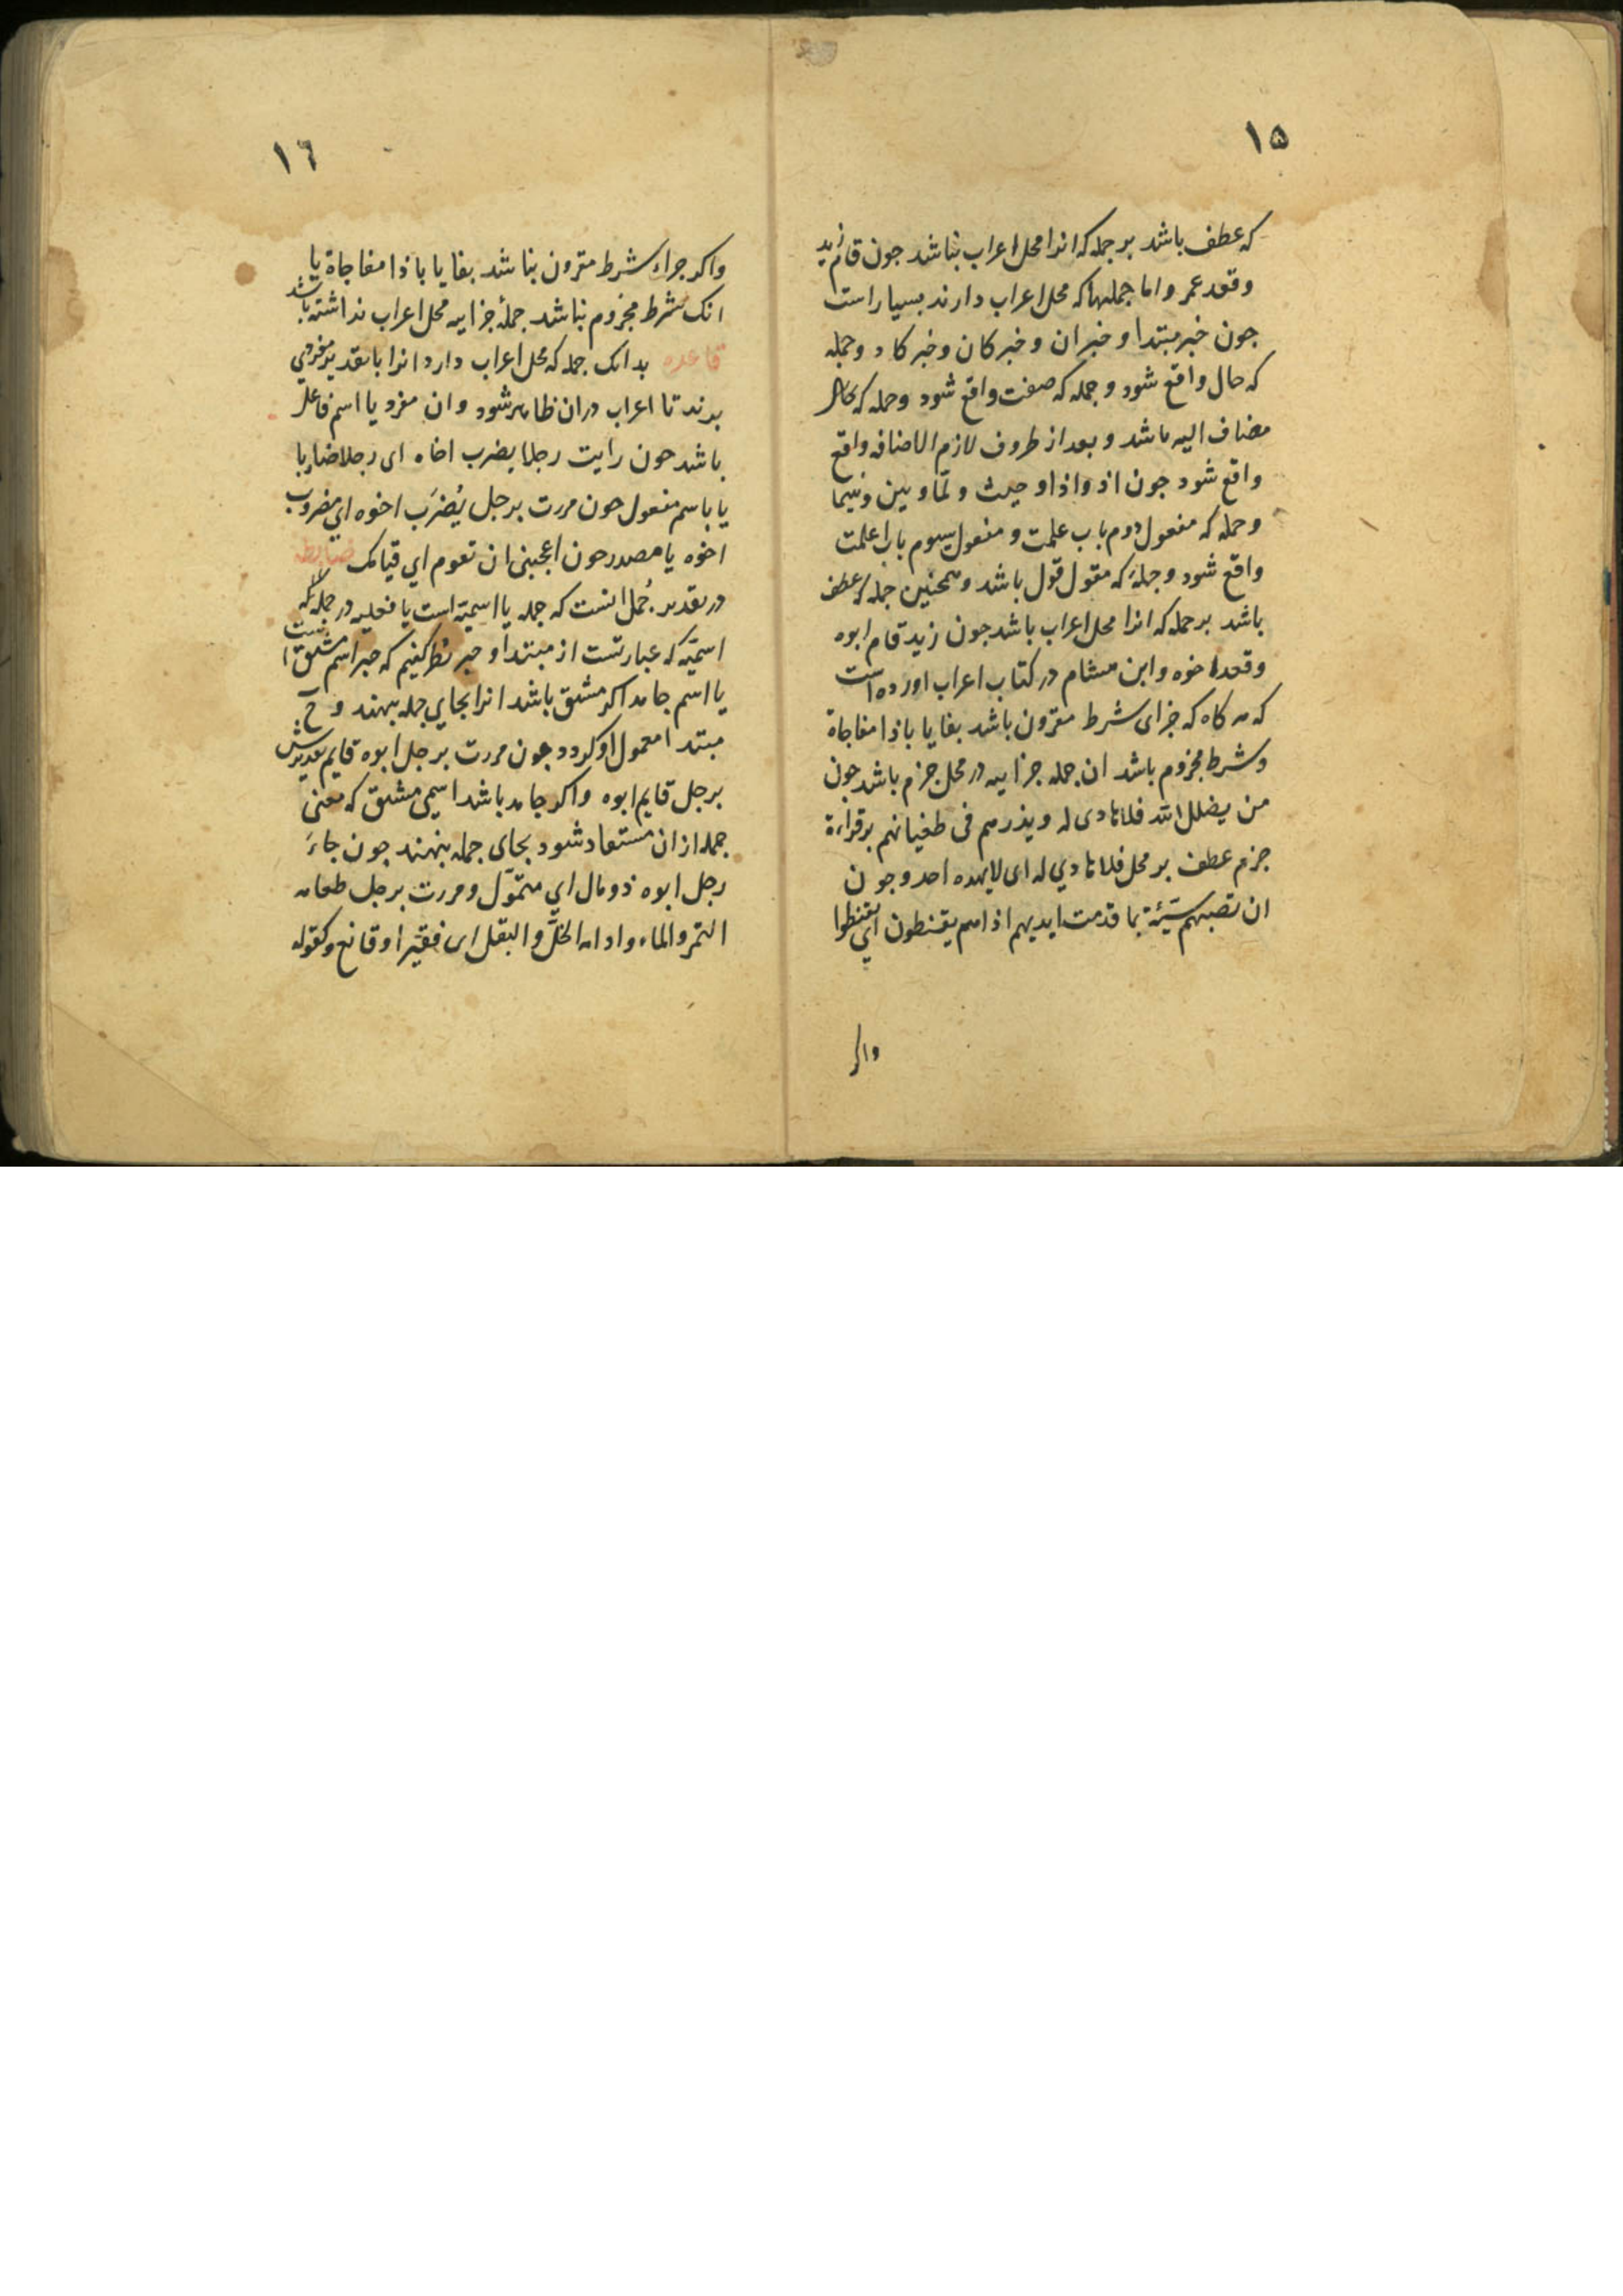 ١٥
که عطف باشد بر جمله که انرا محل اعراب نباشد جون قام زید
وقعد عمر و اما جملها که محل اعراب دارند بسیار است
جون خبر مبتدا و خبر ان و خبر کان و خبر کاد و جمله
که حال واقع شود و جمله که صفت واقع شود و جمله که
مضاف الیه باشد و بعد از ظروف لازم الاضافه واقع
واقع شود جون اذ واذا و حیث و لمّا و بین و بینما
و جمله که مفعول دوم باب علمت و مفعول سیوم باب اعلمت
واقع شود و جملۀ که مقول قول باشد و همچنین جمله که عطف
باشد بر جمله که انرا محل اعراب باشد جون زید قام ابوه
وقعد اخوه و ابن هشام در کتاب اعراب اورده است
که هر کاه که جزای شرط مقرون باشد بفا یا باذا مفاجاة
و شرط مجزوم باشد ان جمله جزاییه در محل جزم باشد جون
من یضلل الله فلا هادی له و یذرهم فی طغیانهم بر قراءة
جزم عطف بر محل فلا هادي له ای لا یهده احد و جون
ان تصبهم سیّئة بما قدمت ایدیهم اذا هم یقنطون اي یقنطوا
واکر
١٦
واکر جزاء شرط مقرون نباشد بفا یا باذا مفاجاة یا
انک شرط مجزوم نباشد جملۀ جزاییه محل اعراب نداشته باشد
قاعده بدانک جمله که محل اعراب دارد انرا بتقدیر مفردي
برند تا اعراب دران ظاهر شود و ان مفرد یا اسم فاعل
باشد جون رایت رجلا یضرب اخاه ای رجلا ضاربا
یا باسم مفعول جون مررت برجل یُضرَب اخوه اي مضروب
اخوه یا مصدر جون اعجبنی ان تقوم اي قیامک ضابطه
در تقدیر جُمل انست که جمله یا اسمیّة است یا فعلیه در جمله که
اسمیّه که عبارتست از مبتدا و خبر نظر کنیم که خبر اسم مشتق است
یا اسم جامد اکر مشتق باشد انرا بجاي جمله بنهند و ح
مبتدا معمول او کردد جون مررت برجل ابوه قایم تقدیرش
برجل قایم ابوه واکر جامد باشد اسمی مشتق که معنی
جمله از ان مستفاد شود بجای جمله بنهند جون جاءَ
رجل ابوه ذو مال اي متموّل و مررت برجل طعامه
التمر والماء و ادامه الخلّ والبقل ای فقیر او قانع و کقوله